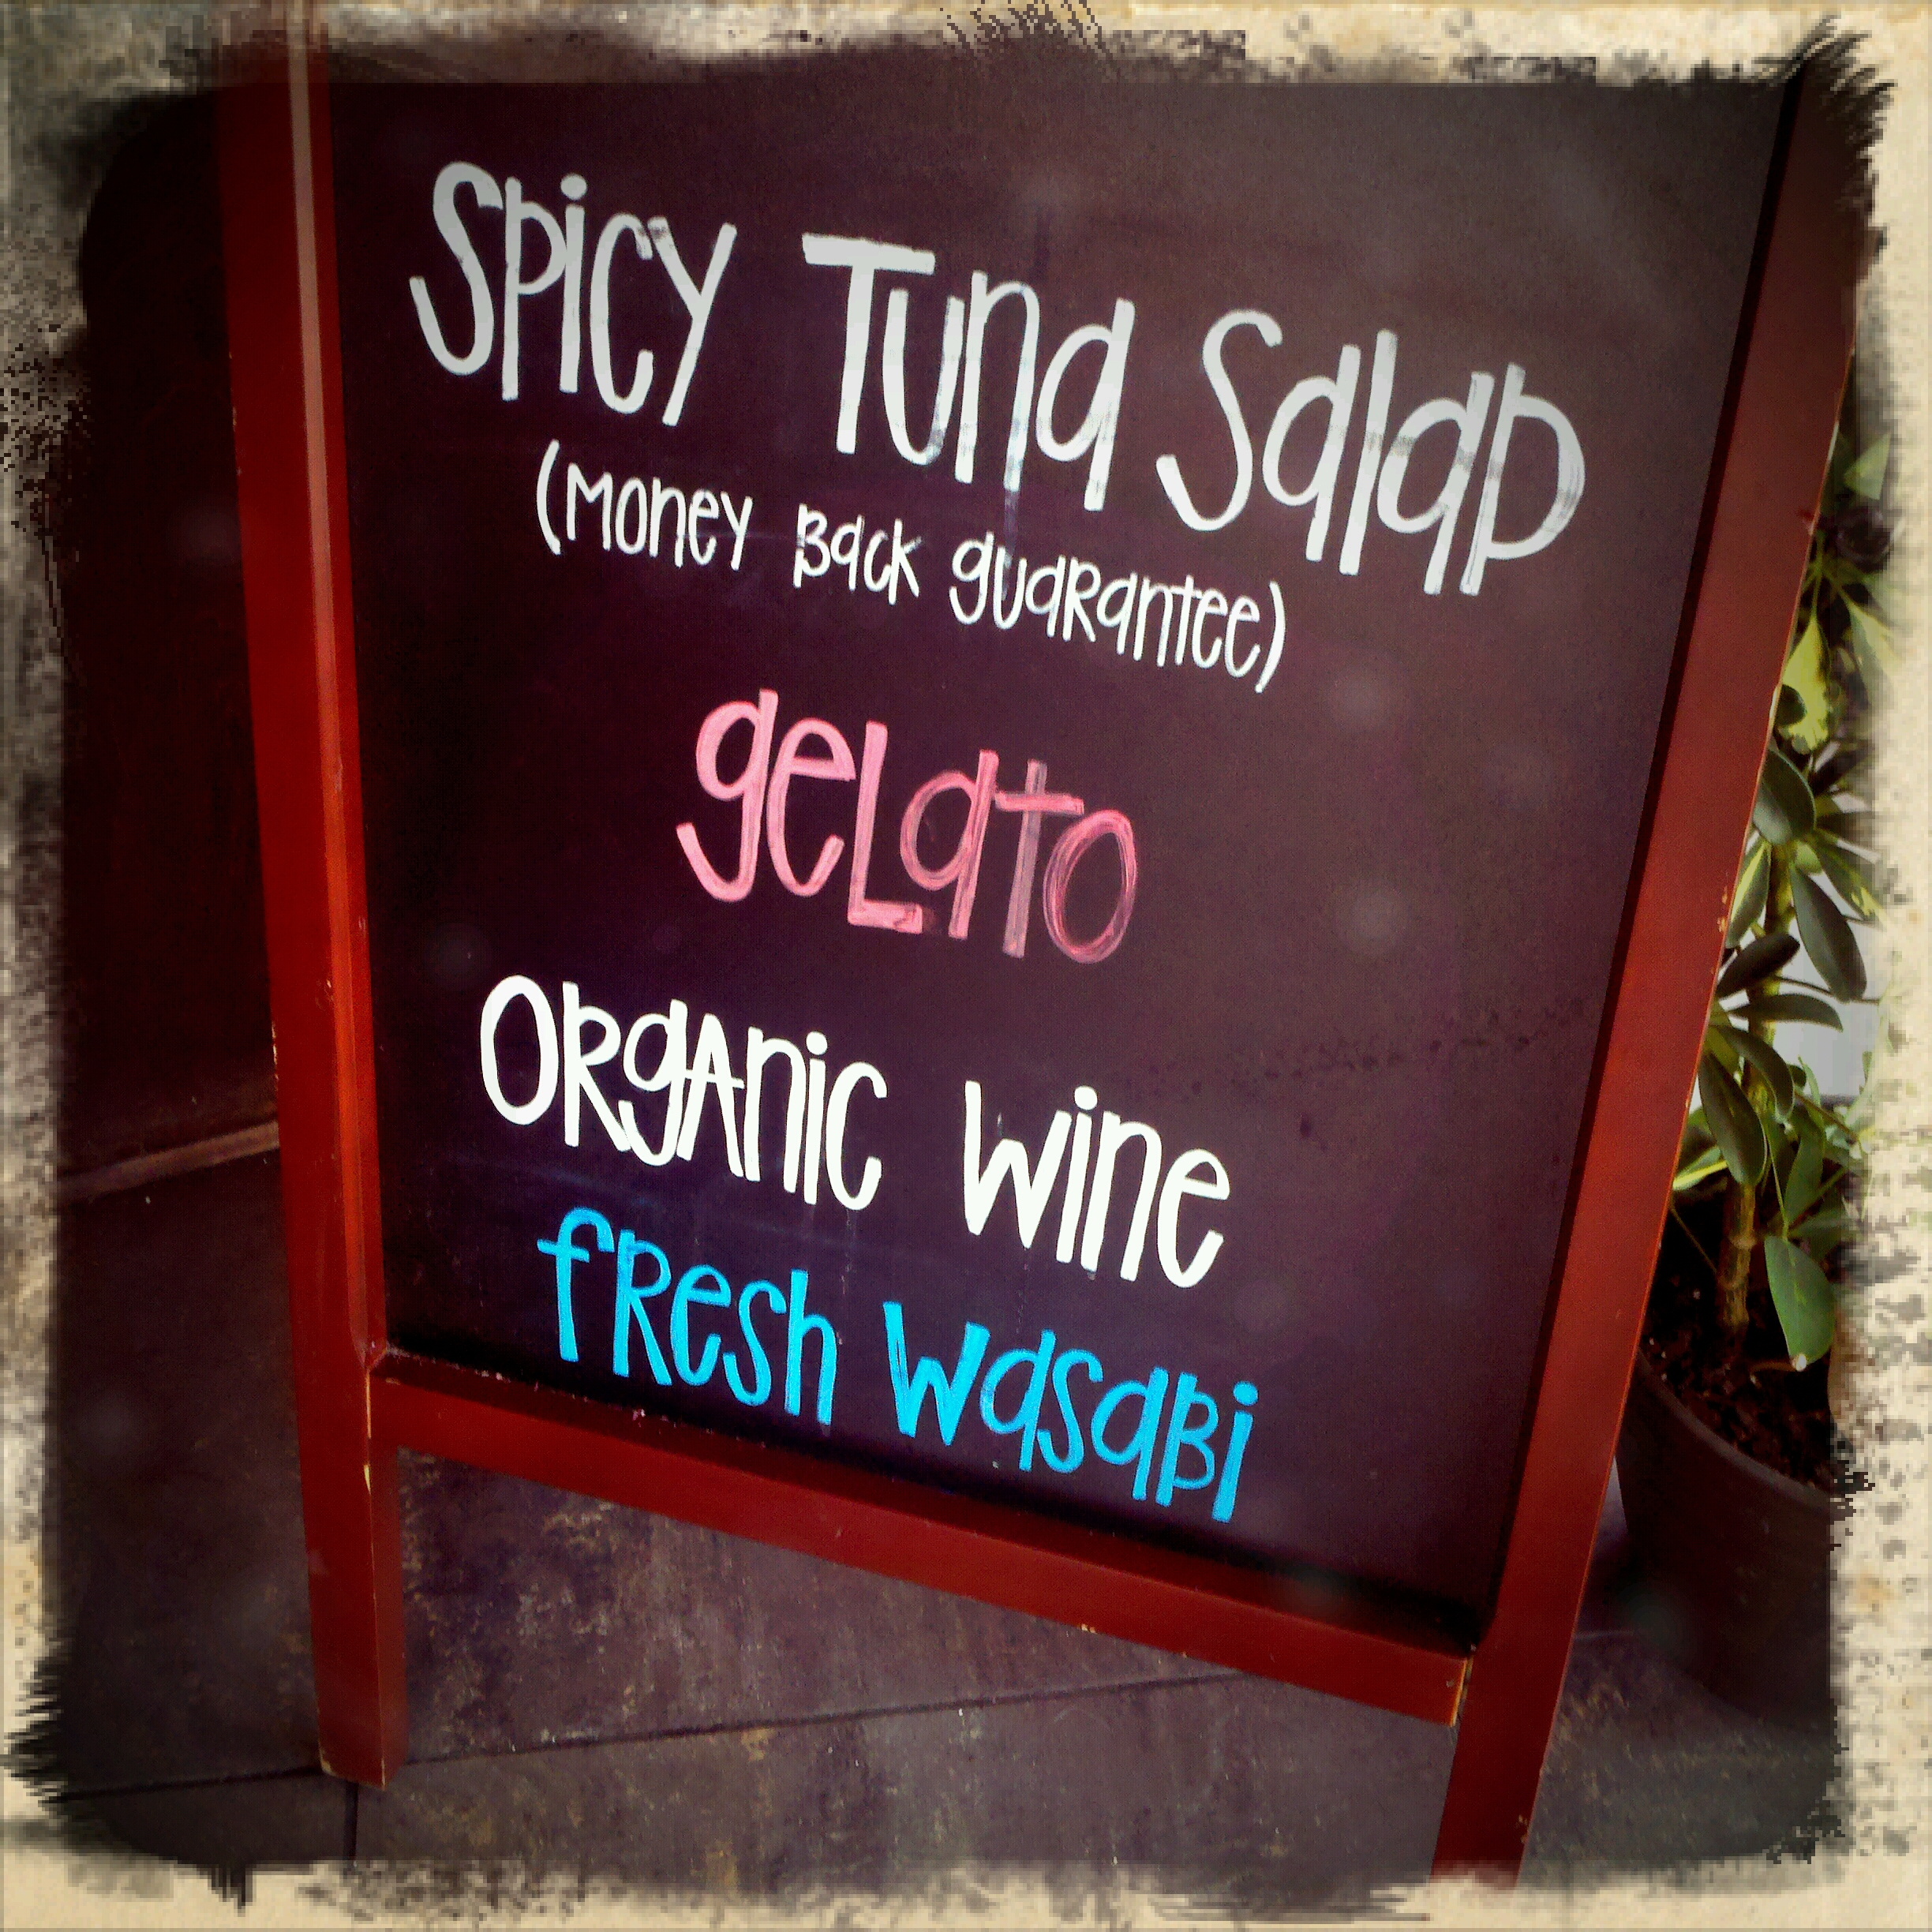 Spicy Tuna Salad
(Money Back guarantee)
gelato
Organic Wine
fresh Wasabi